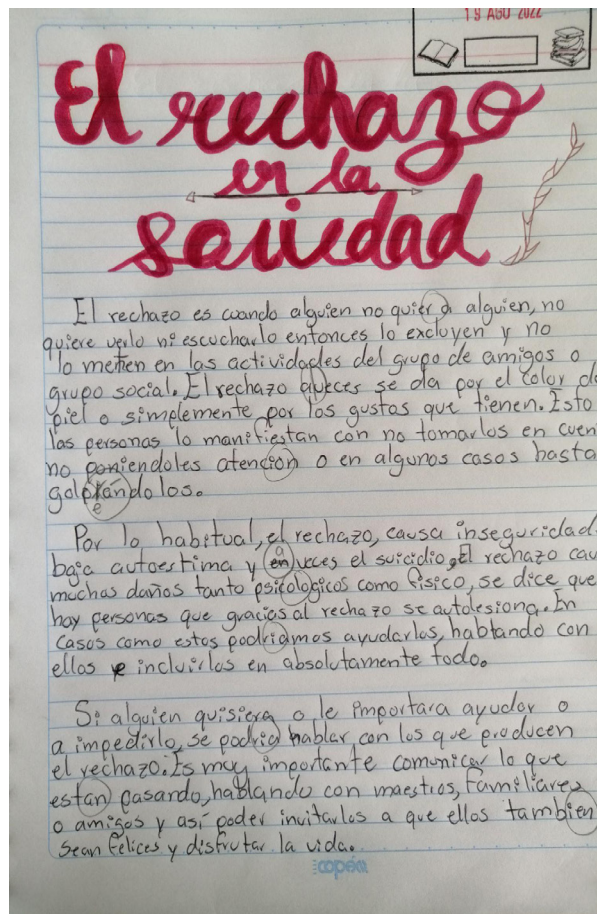 19 AGO 2022
El rechazo
en la
sociedad
El rechazo es cuando alguien no quiera a alguien, no
quiere verlo ni escucharlo entonces lo excluyen y no
lo metten en las actividades del grupo de amigos o
grupo social. El rechazo aveces se da por el color de
piel o simplemente por los gustos que tienen. Esto
las personas lo manifiestan con no tomarlos en cuen
no poniendoles atencion o en algunos casos hasta
golpeándolos.
Por lo habitual, el rechazo, causa inseguridad
baja autoestima y a veces el suicidio. El rechazo cau
muchas daños tanto psicologicos como fisico, se dice que
hay personas que gracias al rechazo se autolesiona. En
casos como estos podriamos ayudarlos, hablando con
ellos e incluirlos en absolutamente todo.
Si alguien quisiera o le importara ayudar o
a impedirlo, se podria hablar con los que producen
el rechazo. Es muy importante comunicar lo que
estan pasando, hablando con maestros, familiares
o amigos y así poder invitarlos a que ellos tambien
sean felices y disfrutar la vida.
copán